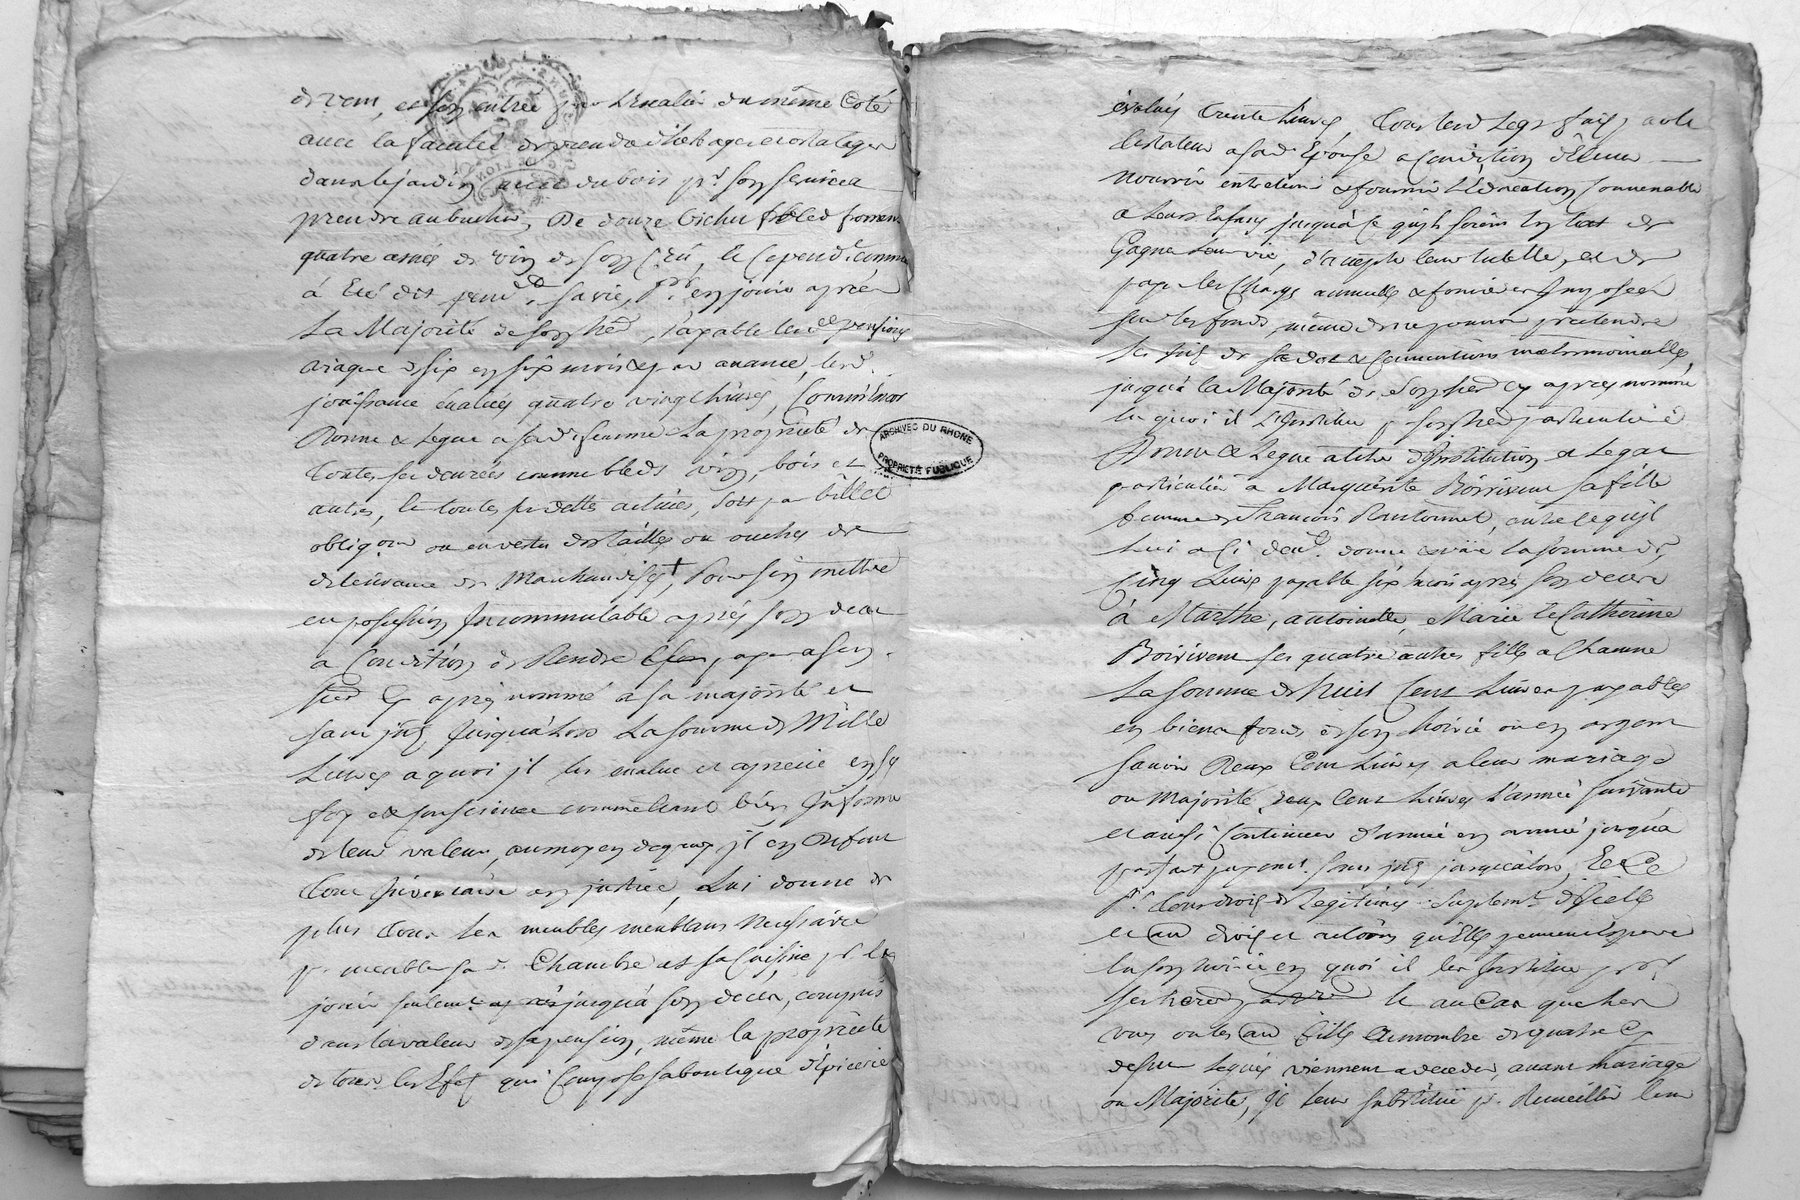 de vent, et son entrée par l'Escalier du même Coté
avec la faculté de prendre d'herbages et ortolages
dans le jardin avec du bois pr. son service a
prendre au bucher, De douze bichet bled froment
quatre asnés de vin de son Crû, le Cependt. comme
à Eté dit pendt. sa vie, pr. en jouir après
La Majorité de son hér, payable lesdes pensions
de six en six mois et par avance, lesd.
jouissance évalués quatre vingt livres,
Donne & Legue a sad. femme La propriété de
toutes ses denrées comme bleds vin, bois et
autres, & toutes ses dettes actives, soit par billet
obligaon ou en vertu des tailles ou ouches de
délivrance de Marchandises + Pour s'en mettre
en possession Incommutable après son deces
a Condition de Rendre a son
her Cy après nommé a sa majorité et
sans jnt Jusqu'alors La somme de Mille
Livres a quoi jl les evalue et apretie en sa
foy & Conscience comme étant bien Informé
de leur valeur, au moyen de quoy jl en Defend
tout Inventaire en justice, Lui donne de
plus tous les meubles meublans necessaires
pr. meubler sad. Chambre et sa Cuisine pr. en
jouir seulemt. jusqu'à son deces, compris
dans la valeur de sa pension, même la propriété
de tous les Efets qui Composent sa boutique d'épicerie
évalués trente Livres, tous lesd Legs fais par le
testateur a sad. Epouse a Condition d'Elever
nourrir entretenir & fournir L'Education Convenable
a Leurs Enfans jusqu'à ce qu'ils soient En Etat de
Gagner Leur vie, d'accepter leur tutelle, et de
payer les Charges annuelles & foncieres Imposées
sur les fonds, même de ne pouvoir pretendre
de sa dot & Conventions matrimonialles
jusqu'à la Majorité de Son her cy après nommé
En quoi il L'Institue pr son her particuliere
Donne & Legue a titre d'Institution et Legat
particulier a Marguerite Boiriven sa fille
femme de François Plantonnet, outre ce qu'il
Lui a Ci devt. donné la somme de
Cinq Livres payable six mois après son deces
à Marthe, antoinette, Marie & Catherine
Boiriven ses quatre autres filles a Chacune
La somme de huit Cent Livres payables
en biens fonds de son hoirie ou en argent
savoir Deux Cent Livres a leur mariage
ou Majorité, deux Cent Livres L'année suivante
et ainsi Continuer d'année en année jusqu'a
parfait payemt. sans jnt jusqu'alors, Et Ce
pr. tous droits de Legitimes Suplemt. d'icelles
et au droits et actions qu'Elles peuvent espérer
En son hoirie en quoi il les Institue pr
ses heres & au Cas que les
unes ou les au filles au nombre de quatre Cy
dessus Leguées viennent a deceder, avant mariage
ou Majorité, jl leur substitue pr. Recueillir leur
ARCHIVES DU RHONE
PROPRIÉTÉ PUBLIQUE